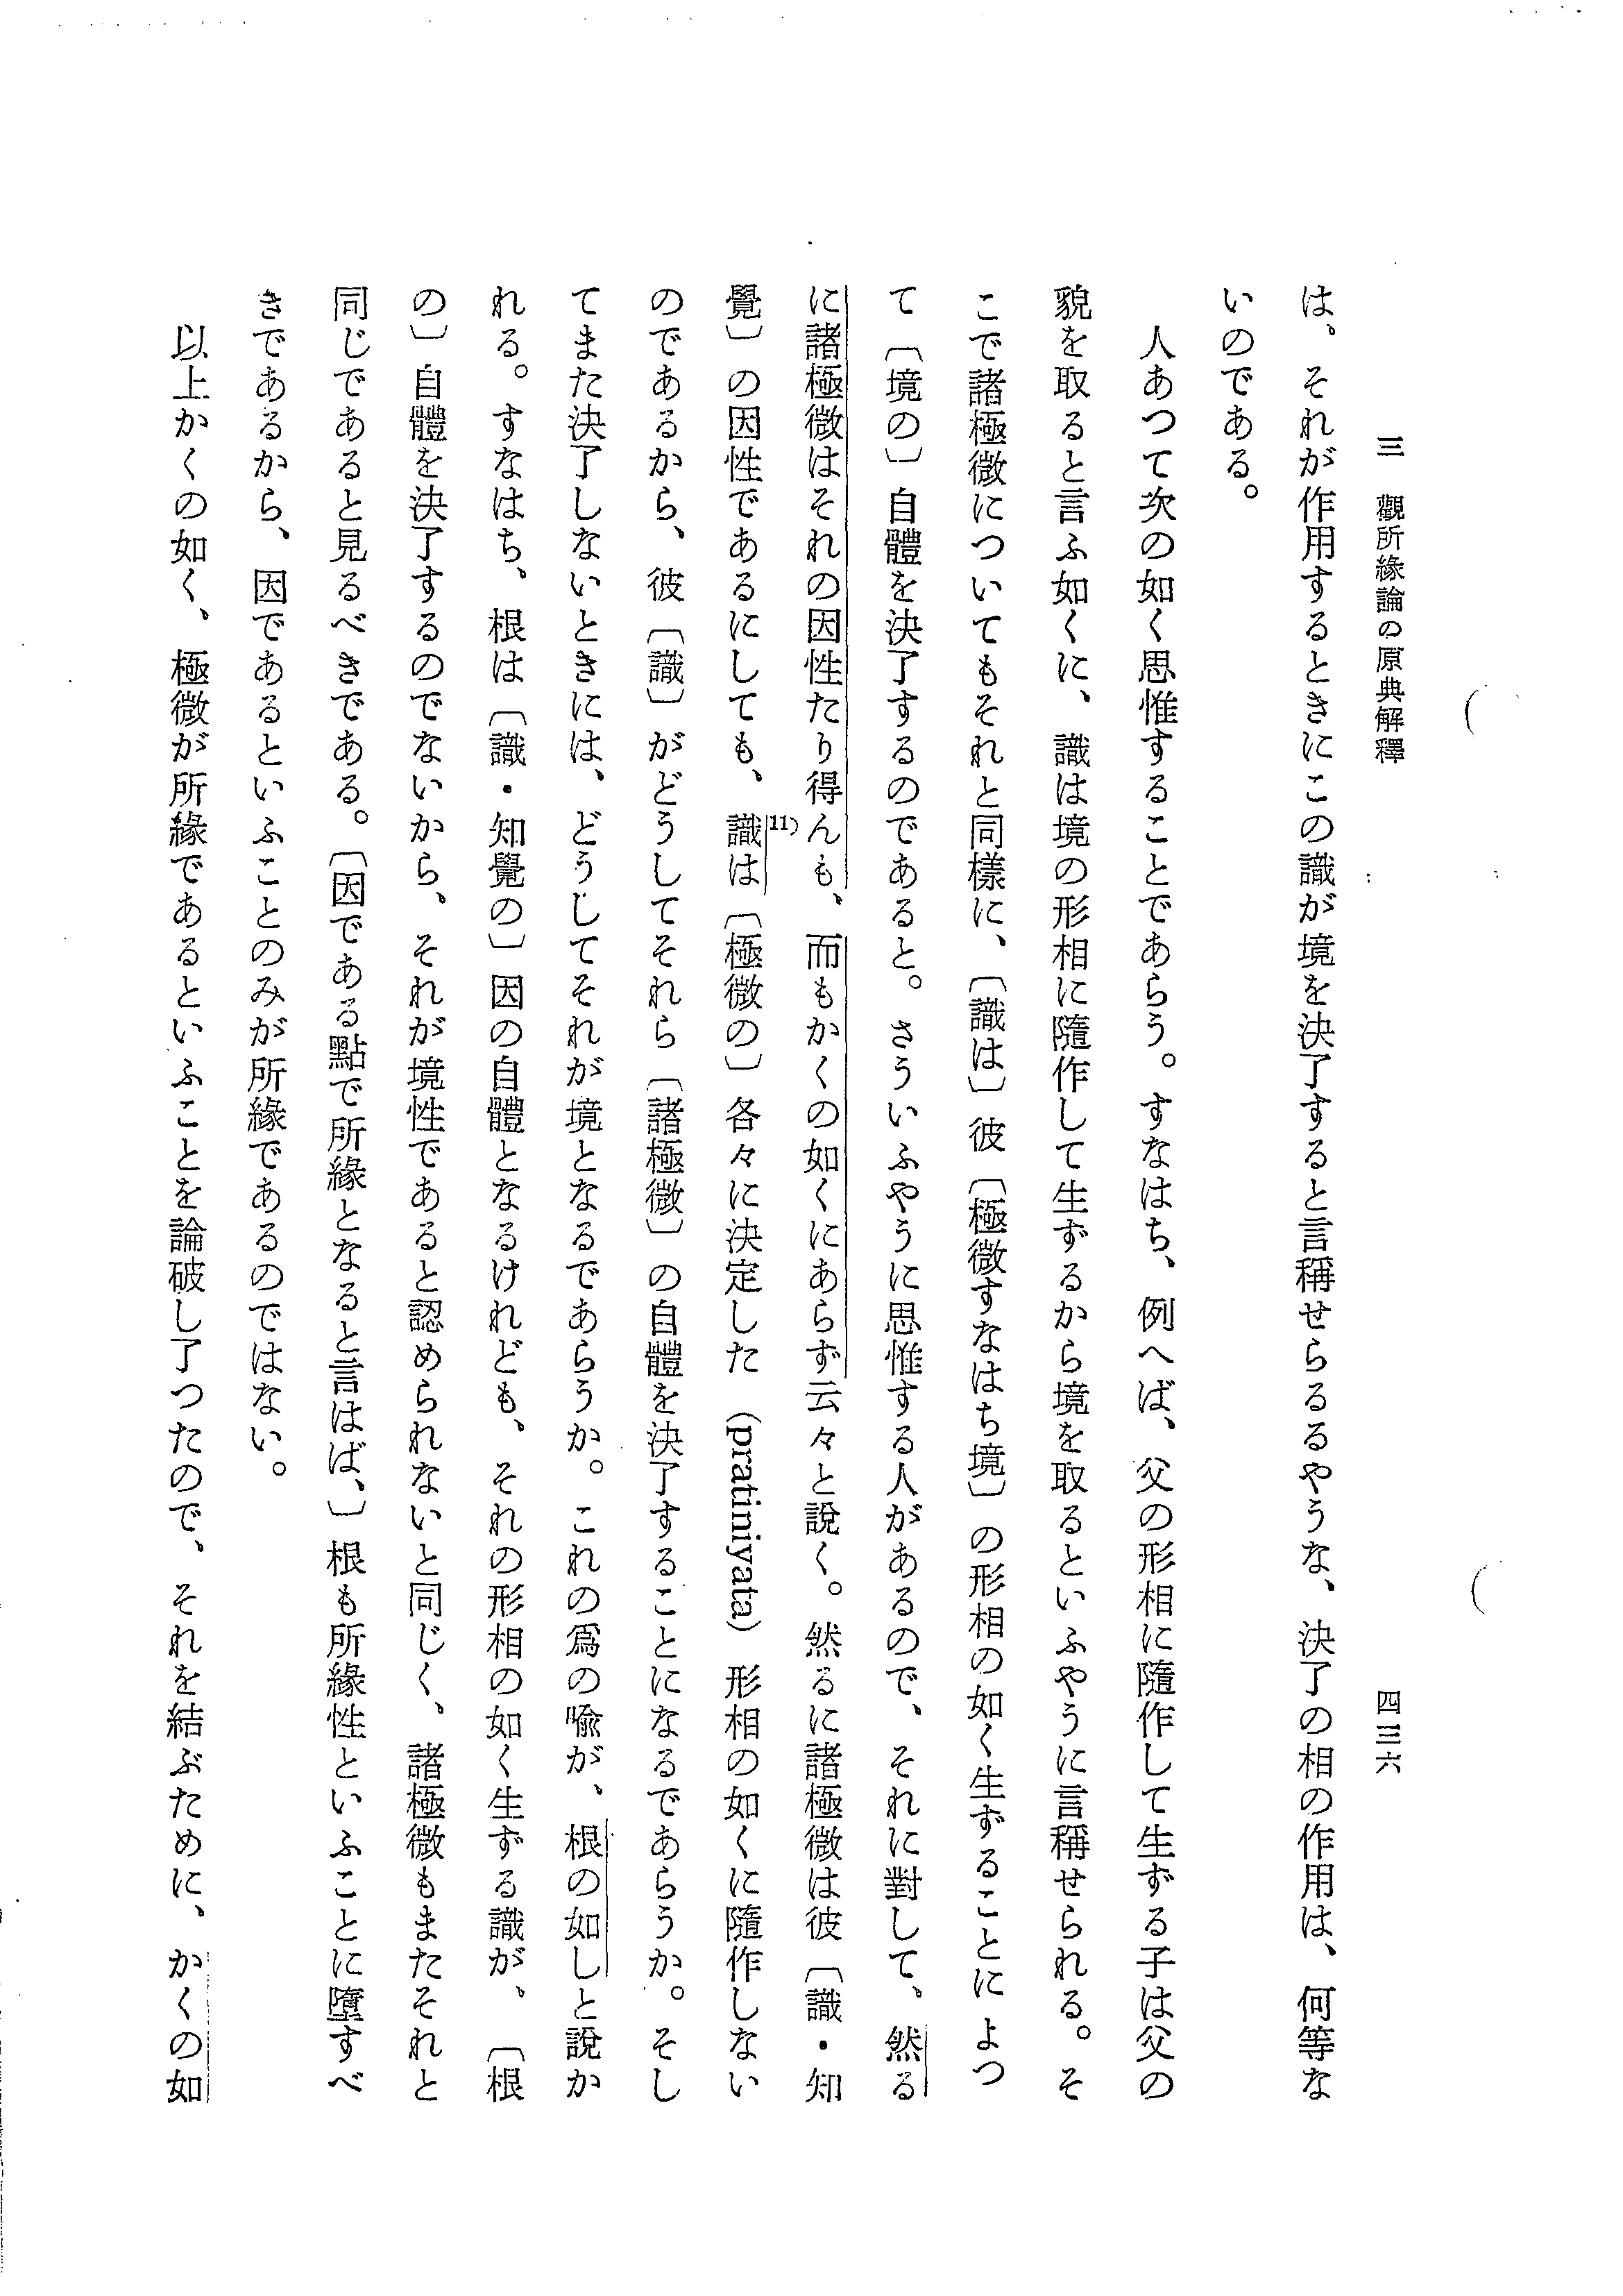 三　觀所緣論の原典解釋
四三六
は、それが作用するときにこの識が境を決了すると言稱せらるるやうな、決了の相の作用は、何等な
いのである。
人あつて次の如く思惟することであらう。すなはち、例へば、父の形相に隨作して生ずる子は父の
貌を取ると言ふ如くに、識は境の形相に隨作して生ずるから境を取るといふやうに言稱せられる。そ
こで諸極微についてもそれと同樣に、〔識は〕彼〔極微すなはち境〕の形相の如く生ずることによつ
て〔境の〕自體を決了するのであると。さういふやうに思惟する人があるので、それに對して、然る
に諸極微はそれの因性たり得んも、而もかくの如くにあらず云々と說く。然るに諸極微は彼〔識・知
覺〕の因性であるにしても、識は11)〔極微の〕各々に決定した (pratiniyata) 形相の如くに隨作しない
のであるから、彼〔識〕がどうしてそれら〔諸極微〕の自體を決了することになるであらうか。そし
てまた決了しないときには、どうしてそれが境となるであらうか。これの爲の喩が、根の如しと說か
れる。すなはち、根は〔識・知覺の〕因の自體となるけれども、それの形相の如く生ずる識が、〔根
の〕自體を決了するのでないから、それが境性であると認められないと同じく、諸極微もまたそれと
同じであると見るべきである。〔因である點で所緣となると言はば、〕根も所緣性といふことに墮すべ
きであるから、因であるといふことのみが所緣であるのではない。
以上かくの如く、極微が所緣であるといふことを論破し了つたので、それを結ぶために、かくの如